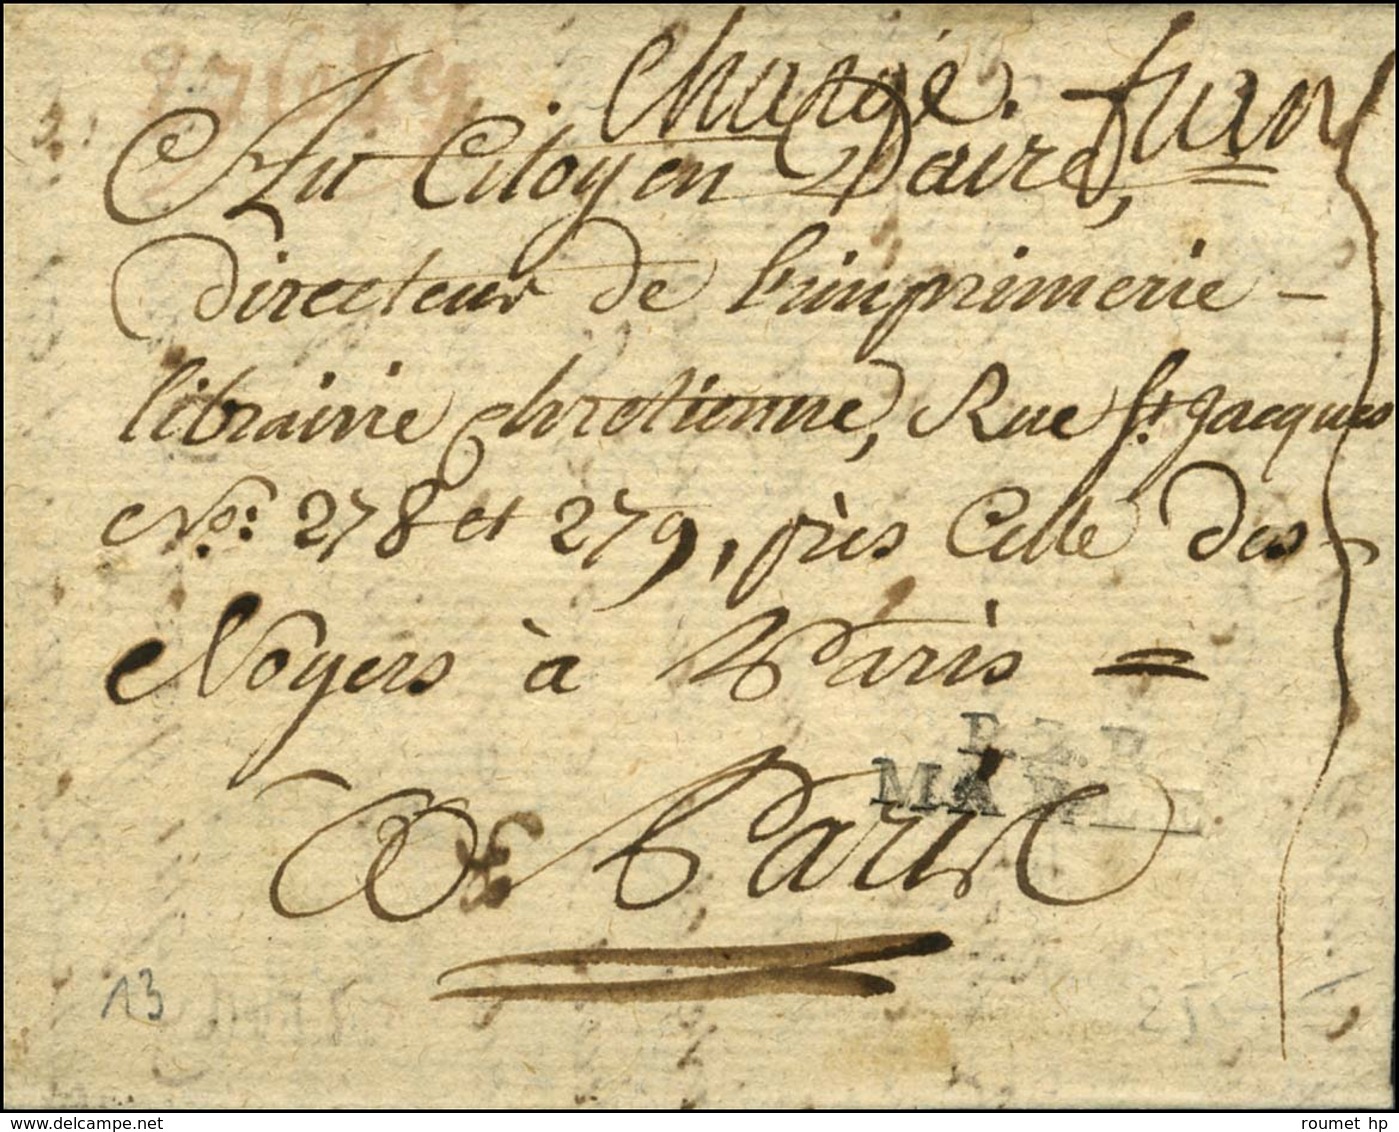 Chargé. fran
Au Citoyen Daire,
Directeur de l'imprimerie -
librairie chretienne, Rue St Jacques
Nos. 278 et 279, près Celle des
Noyers à Paris =
P.2.P
MARLE
Paris
13
www.delcampe.net
roumet hp